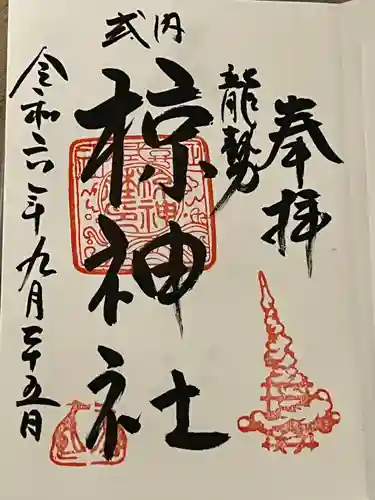 奉拝
龍勢
式内
椋神社
令和六年九月二十五日